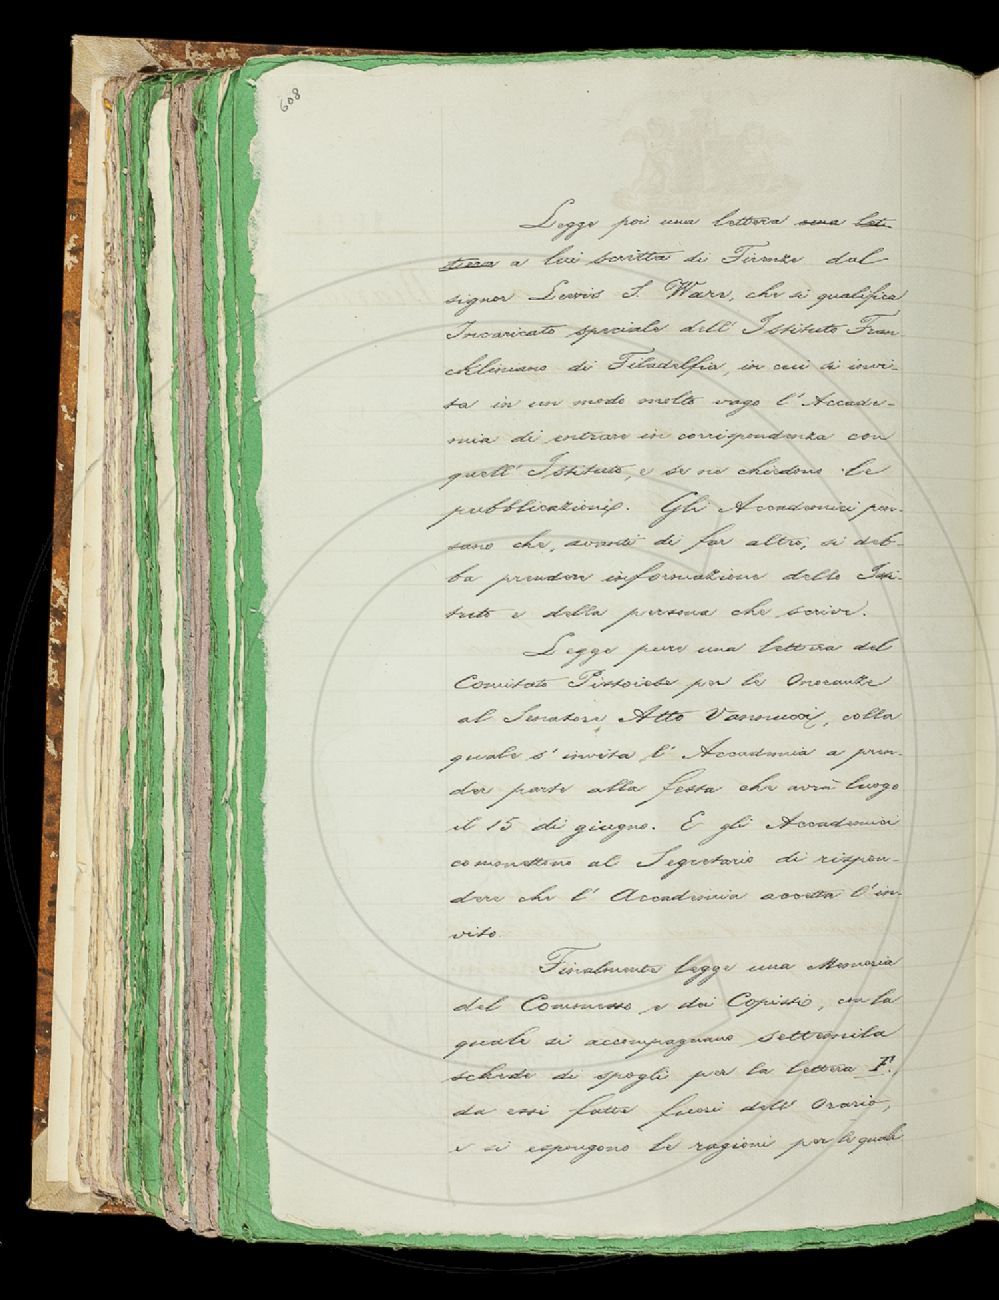 608
Legge poi una lettera una let-
tera a lui scritta di Firenze dal
signor Lewis S. Ware, che si qualifica
Incaricato speciale dell' Istituto Fran-
ckliniano di Filadelfia, in cui si invi-
ta in un modo molto vago l' Accade-
mia di entrare in corrispondenza con
quell' Istituto, e se ne chiedono le
pubblicazioni. Gli Accademici pen-
sano che, avanti di far altro, si deb-
ba prendere informazione dello Isti-
tuto e della persona che scrive.
Legge pure una lettera del
Comitato Pistoiese per le Onoranze
al Senatore Atto Vannucci, colla
quale s' invita l' Accademia a pren-
der parte alla festa che avrà luogo
il 15 di giugno. E gli Accademici
commettono al Segretario di rispon-
dere che l' Accademia accetta l' in-
vito.
Finalmente legge una Memoria
del Commesso e dei Copisti, con la
quale si accompagnano settemila
schede di spogli per la lettera F.
da essi fatte fuori dell' Orario,
e si espongono le ragioni per le quali